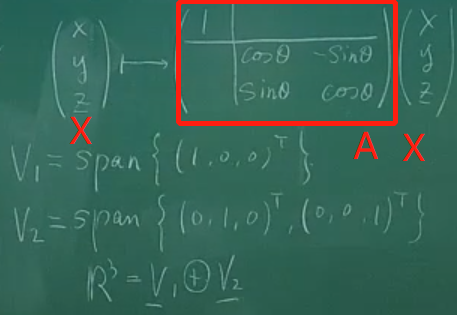 (x y z)ᵀ ⟼ (1 | cosθ -sinθ sinθ cosθ) (x y z)
X A X
V₁ = span{(1,0,0)ᵀ}.
V₂ = span{(0,1,0)ᵀ, (0,0,1)ᵀ}
ℝ³ = V₁ ⊕ V₂